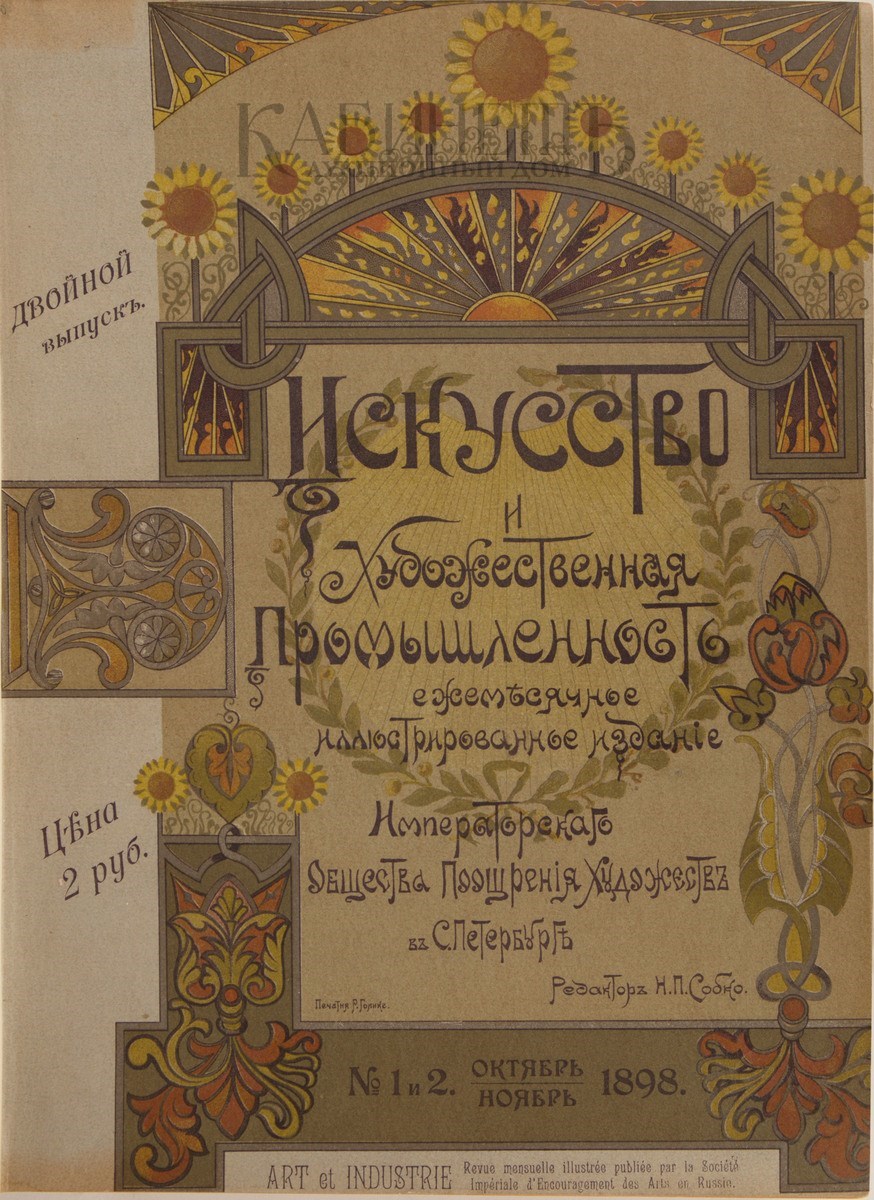 КАБИНЕТЪ
АУКЦИОННЫЙ ДОМ
ДВОЙНОЙ
выпускъ.
Искусство
и
Художественная
Промышленность
ежемѣсячное
иллюстрированное изданіе
Императорскаго
Общества Поощренія Художествъ
въ С.Петербургѣ
Редакторъ Н.П.Собко.
Печатня Р.Голике.
Цѣна
2 руб.
№ 1 и 2. ОКТЯБРЬ НОЯБРЬ 1898.
ART et INDUSTRIE Revue mensuelle illustrée publiée par la Société
Impériale d'Encouragement des Arts en Russie.